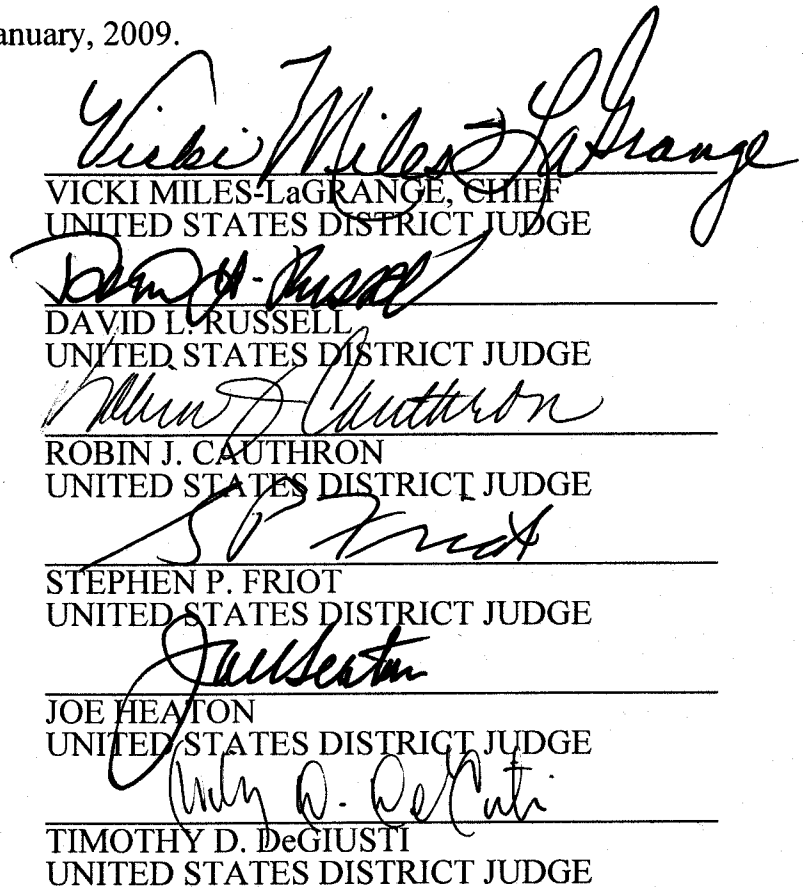 anuary, 2009.
Vicki Miles-LaGrange
VICKI MILES-LaGRANGE, CHIEF
UNITED STATES DISTRICT JUDGE
DAVID L. RUSSELL
UNITED STATES DISTRICT JUDGE
Robin J Cauthron
ROBIN J. CAUTHRON
UNITED STATES DISTRICT JUDGE
S P Friot
STEPHEN P. FRIOT
UNITED STATES DISTRICT JUDGE
Joe Heaton
JOE HEATON
UNITED STATES DISTRICT JUDGE
D. DeGiusti
TIMOTHY D. DeGIUSTI
UNITED STATES DISTRICT JUDGE